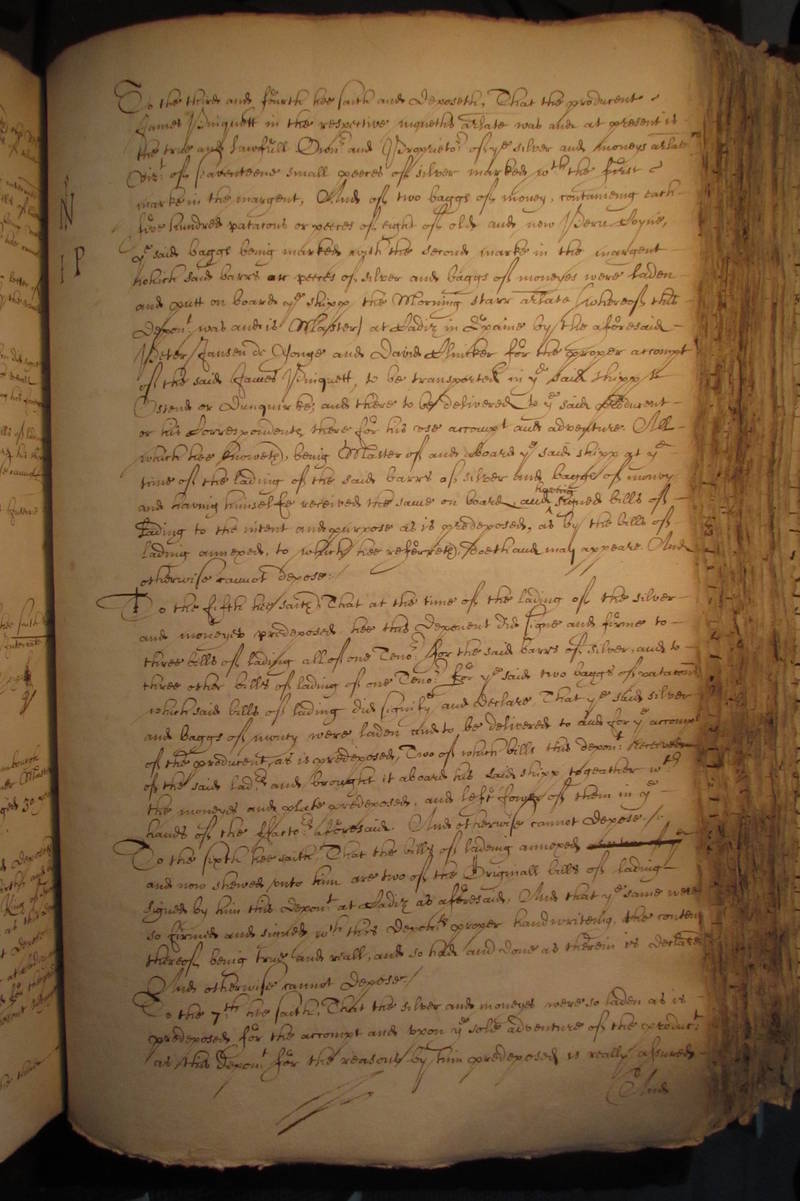 To the third and fourth hee saith and deposeth, That the producent
James Pinquett in the respective arlate was and at present is
the true and lawfull Owner and Proprietor of ye silver and moneys arlate
vizt of seaventeene small peeces of silver marked wth the first
marke in the margent, And of two baggs of money, contayneing each
five hundred patacons or peeces of eight of old and new Peru Coyne,
ye said baggs being marked with the second marke in the margent
N
J P
which said barrs or peeces of silver and baggs of moneyes were laden
and putt on board ye shipp the Morning starr arlate (whereof this
Depont was and is Master) at Cadiz in Spaine by the aforesaid
Peter Jansen de Jonge and David for the proper accompt
of the said James Pinquett, to be transported in ye said shipp to
Ostend or Dunquirke, and there to be delivered to ye said Producent
or his Correspondents there for his use accompt and adventure. All
which hee knoweth, being Master of and aboard ye said shipp at ye
time of the lading of the said barrs of silver and baggs of money
and having himselfe received the same on board and having signed bills of
Lading to the intent and purpose as is predeposed, as by the bills of
lading annexed, to which hee referreth, doeth and may appeare. And
otherwise cannot depose./
To the fifth hee saith, That at the time of the lading of the silver
and moneyes predeposed hee this deponent did signe and firme to
three bills of lading all of one Tenor for the said barrs of silver, and to
three other bills of lading of one Tenor for ye said two baggs of patacons
which said bills of lading did signify and declare, That ye said silver
and baggs of mony were laden and to be delivered to and for ye accompt
of the producent, as is predeposed, Two of which bills this depont received
of the said and brought it aboard his said shipp togeather wth
the moneyes and plate predeposed, and left fower of them in ye
hands of the ffactors aforesaid. And otherwise cannot depose./.
To the sixth hee saith, That the bills of ladeing annexed
and now shewed unto him are two of the Originall bills of lading
signed by him this deponent at Cadiz as aforesaid, And that ye same were
so firmed and signed wth this deponts proper handwriteing, the conten
thereof being true and reall, and so had and done as therein is declared
And otherwise cannot depose./
To the 7th hee saith, That the silver and moneyes were so laden as is
predeposed for the accompt and upon ye sole adventure of the producent
as this deponent for the reasons by him predeposed is really assured
And